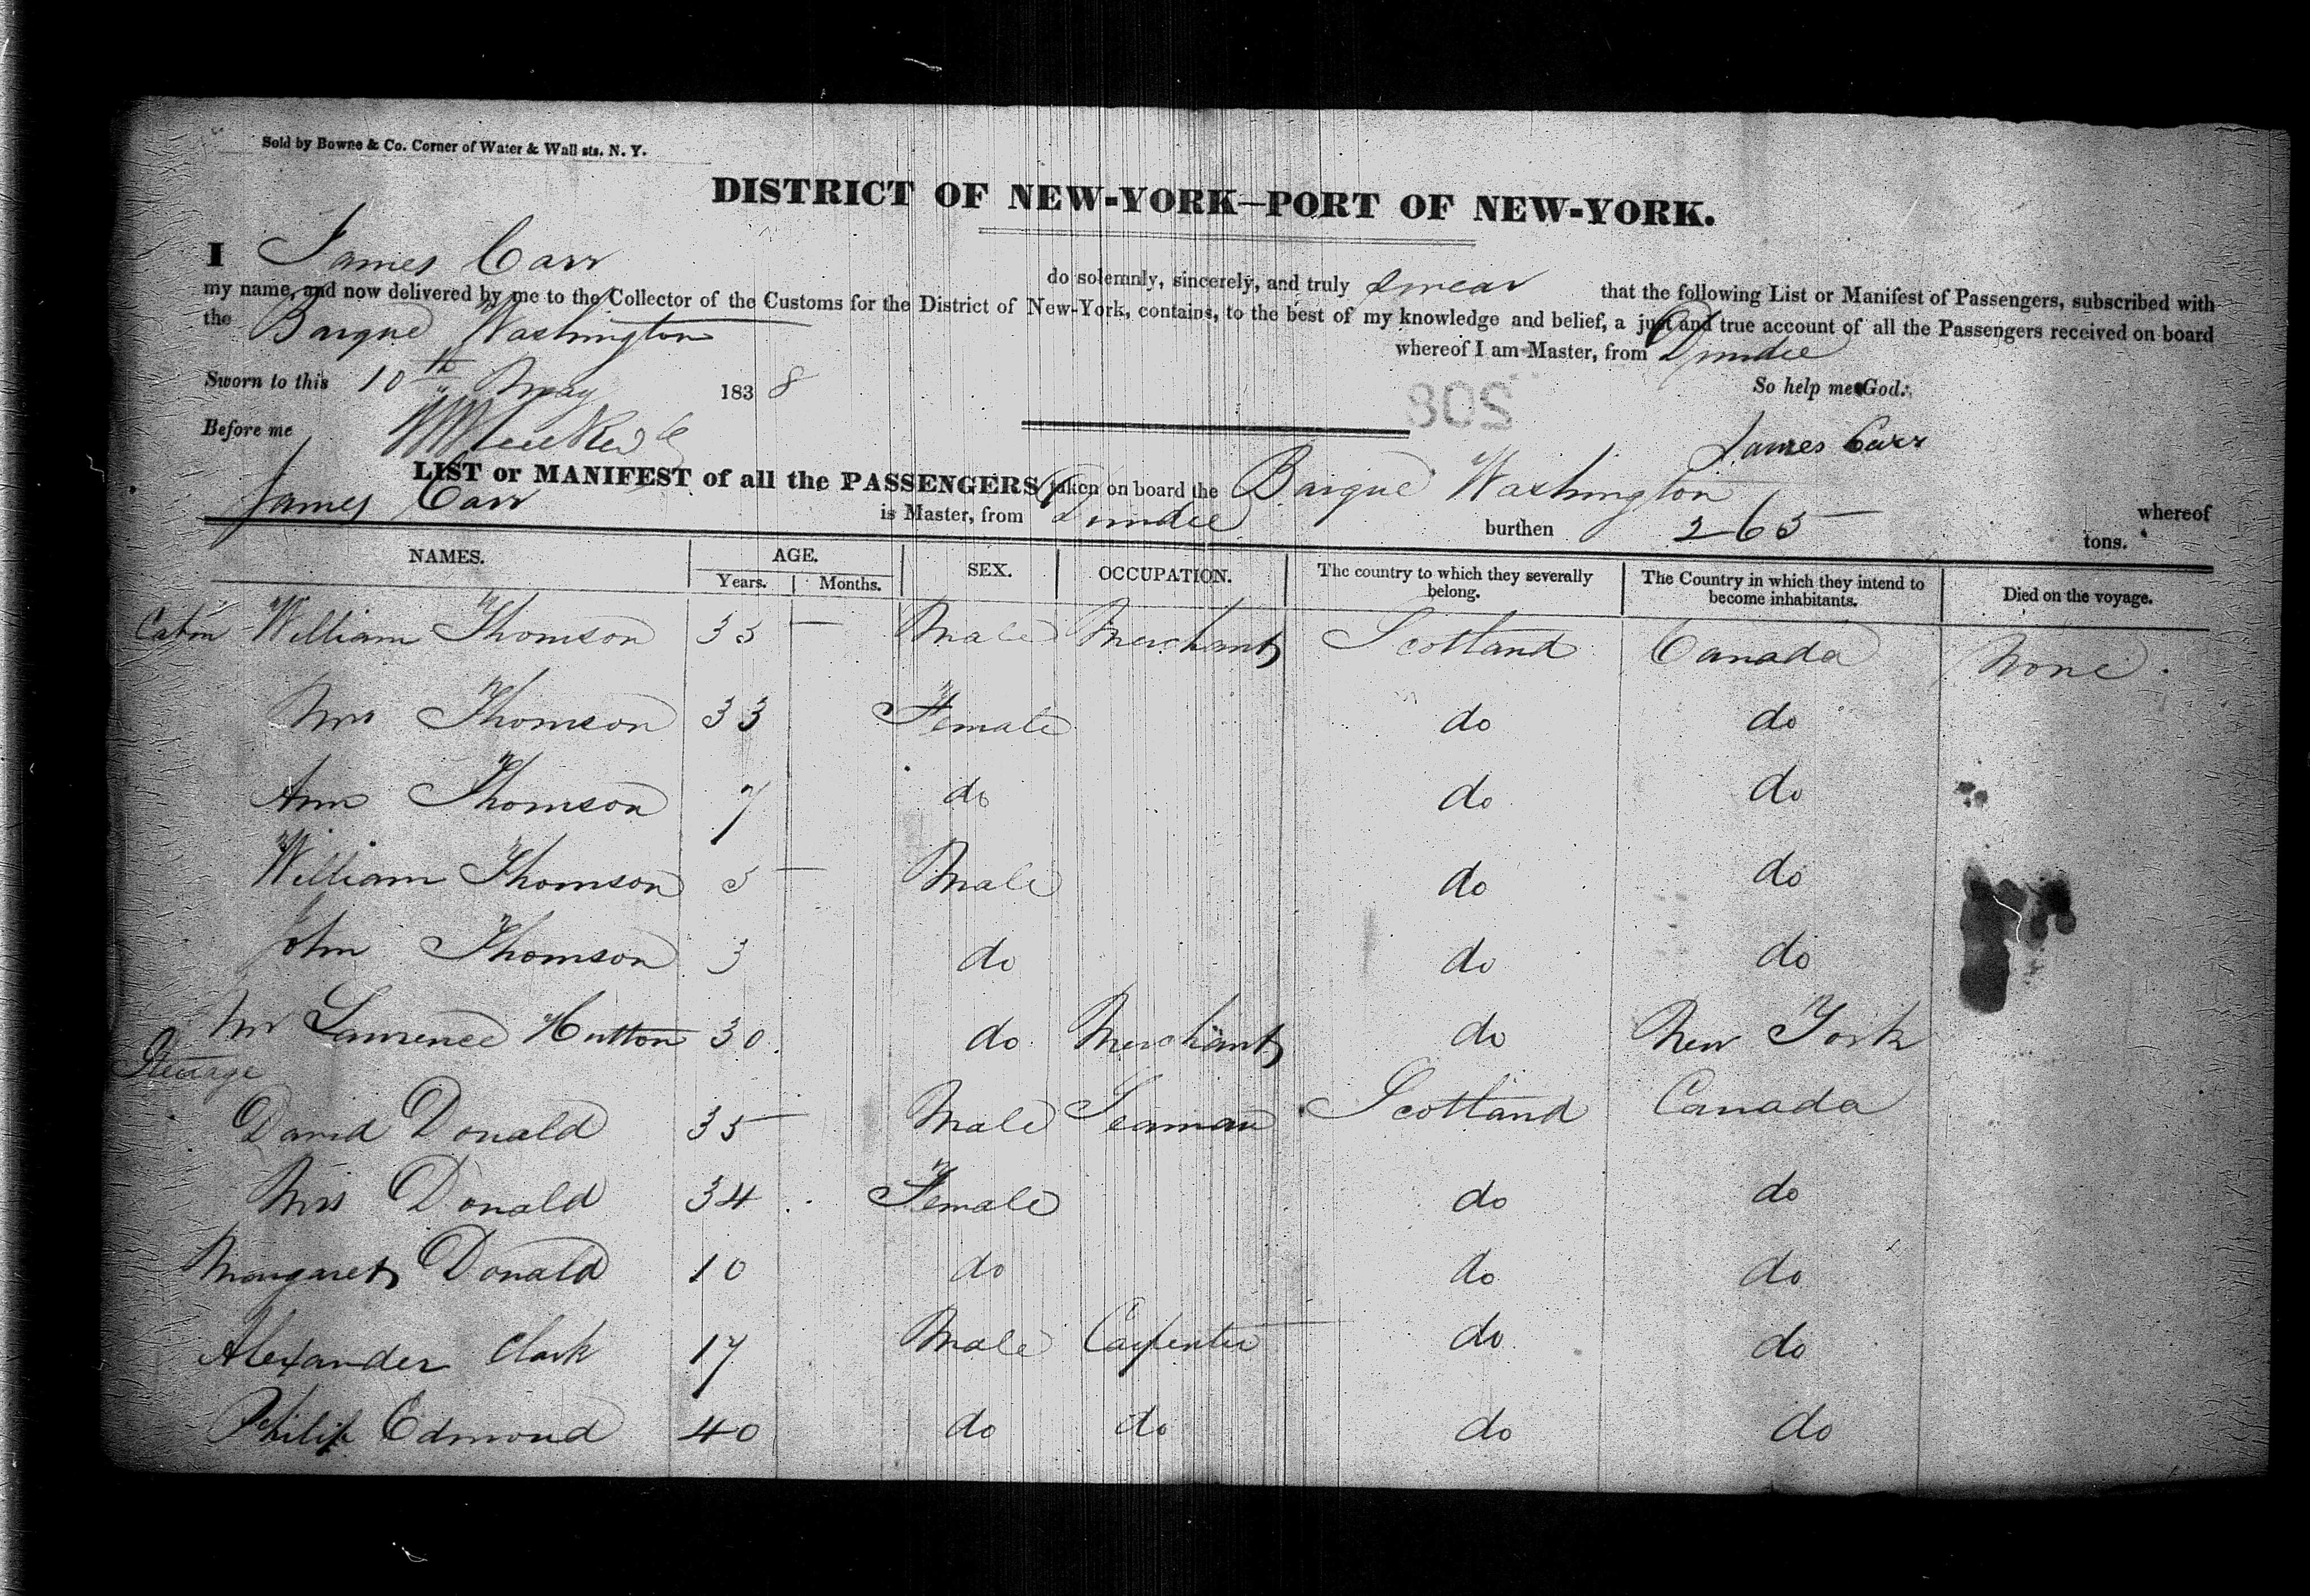 Sold by Bowne & Co. Corner of Water & Wall sts. N. Y.
DISTRICT OF NEW-YORK—PORT OF NEW-YORK.
I James Carr do solemnly, sincerely, and truly swear that the following List or Manifest of Passengers, subscribed with
my name, and now delivered by me to the Collector of the Customs for the District of New-York, contains, to the best of my knowledge and belief, a just and true account of all the Passengers received on board
the Barque Washington whereof I am Master, from Dundee
Sworn to this 10th May 1838 So help me God.
208
Before me
James Carr
LIST or MANIFEST of all the PASSENGERS taken on board the Barque Washington whereof
James Carr is Master, from Dundee burthen 265 tons.
NAMES. AGE. SEX. OCCUPATION. The country to which they severally belong. The Country in which they intend to become inhabitants. Died on the voyage.
Years. Months.
Cabin William Thomson 35 Male Merchant Scotland Canada None.
Mrs Thomson 33 Female do do
Ann Thomson 7 do do do
William Thomson 5 Male do do
John Thomson 3 do do do
Mr Lawrence Hutton 30 do Merchant do New York
Steerage
David Donald 35 Male Seaman Scotland Canada
Mrs Donald 34 Female do do
Margaret Donald 10 do do do
Alexander Clark 17 Male Carpenter do do
Philip Edmond 40 do do do do